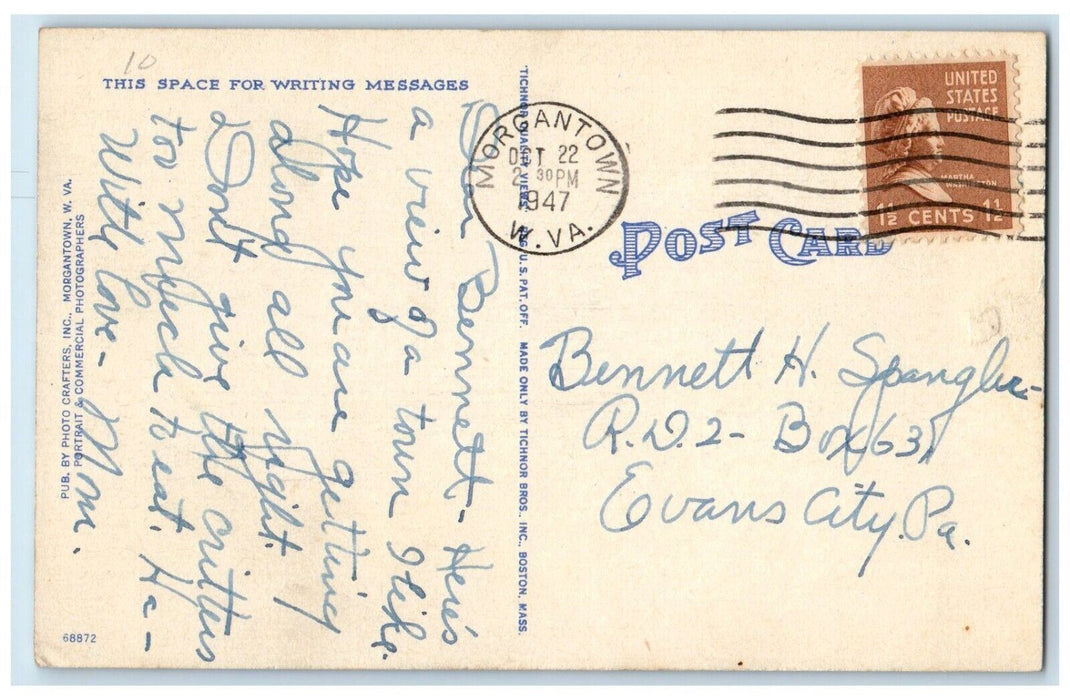 10
THIS SPACE FOR WRITING MESSAGES
Dear Bennett - Here's
a view of a town I like.
Hope you are getting
along all right.
Don't give the critters
to much to eat. Ha -
With love - Mom.
PUB. BY PHOTO CRAFTERS, INC., MORGANTOWN, W. VA.
PORTRAIT & COMMERCIAL PHOTOGRAPHERS
68872
TICHNOR QUALITY VIEWS, REG. U. S. PAT. OFF. MADE ONLY BY TICHNOR BROS. INC., BOSTON, MASS.
MORGANTOWN
OCT 22
2 30PM
1947
W. VA.
UNITED
STATES
POSTAGE
MARTHA
WASHINGTON
1½ CENTS 1½
POST CARD
Bennett H. Spangler -
R.D. 2 - Box 631
Evans City, Pa.